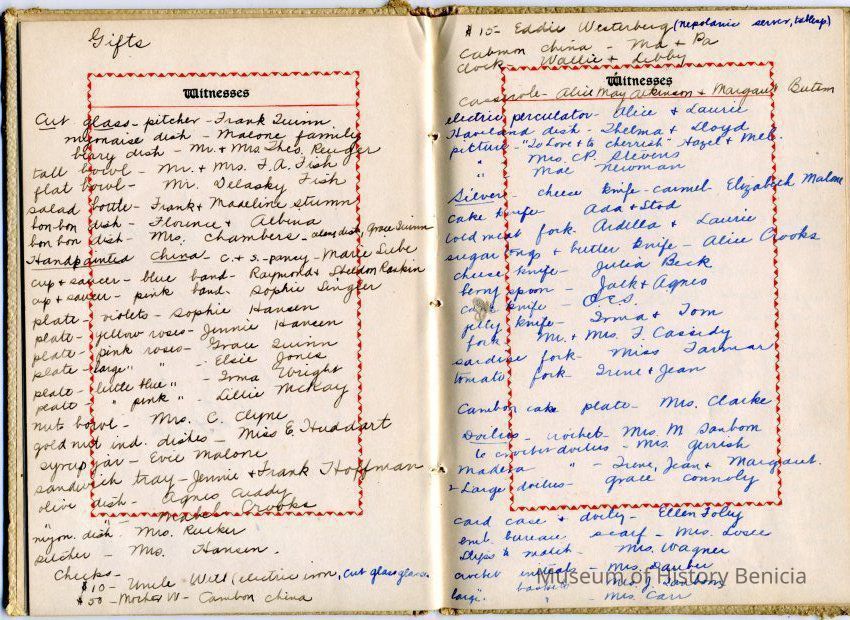 Gifts
Witnesses
Cut glass - pitcher - Frank Quinn
mayonaise dish - Malone family
berry dish - Mr. + Mrs. Theo. Rueger
tall bowl - Mr. + Mrs. F. A. Fish
flat bowl - Mr. Delasky Fish
salad bottle - Frank + Madeline Stumm
bon-bon dish - Florence + Albina
bon bon dish - Mrs. Chambers - along dish, Grace Quinn
Handpainted China - c. + s. - pansy - Marie Lube
cup + saucer - blue band - Raymond + Sheldon Rankin
cup + saucer - pink band - Sophie Lingler
plate - violets - Sophie Hansen
plate - yellow roses - Jennie Hansen
plate - pink roses - Grace Quinn
plate - large " " - Elsie Jones
plate - little blue " - Irma Wright
plate - " pink " - Lillie McKay
nut bowl - Mrs. C. Clyne
gold nut ind. dishes - Miss E. Huddart
syrup jar - Evie Malone
sandwich tray - Jennie + Frank Hoffman
olive dish - Agnes Cuddy
" " - Mabel Crooks
mayon. dish - Mrs. Rucker
pitcher - Mrs. Hansen.
Checks -
$10 - Uncle Will (electric iron, cut glass
$50 - Mother W - Cambon china
$15 - Eddie Westerberg (nepolanic server, tablesp)
Cabmon china - Ma + Pa
clock - Wallie + Libby
Witnesses
Casserole - Alice May Atkinson + Margaret Butem
electric perculator - Alice + Laurie
Haviland dish - Thelma + Lloyd
picture - "To Love + to cherrish" Hazel + Mel.
" - Mrs. C.P. Stevens
" - Mae Newman
Silver cheese knife - carmel - Elizabeth Malone
cake knife - Ada + Stod
cold meat fork - Ardella + Laurie
sugar tongs + butter knife - Alice Crooks
cheese knife - Julia Beck
berry spoon - Jack + Agnes
cake knife - O.E.S.
jelly knife - Irma + Tom
fork - Mr. + Mrs. F. Cassidy
sardine fork - Miss Farmar
tomato fork - Irene + Jean
Cambon cake plate - Mrs. Clarke
Doilies - crochet - Mrs. M Sanborn
6 crochet doilies - Mrs. Gerrish
Madera " - Irene, Jean + Margaret.
2 Large doilies - Grace Connoly
card case + doily - Ellen Foley
emb. bureau scarf - Mrs. Losee
to match - Mrs. Wagner
crochet - Mrs. Dauber
" - Mrs. J. Sanborn
large " - Mrs. Carr
Museum of History Benicia